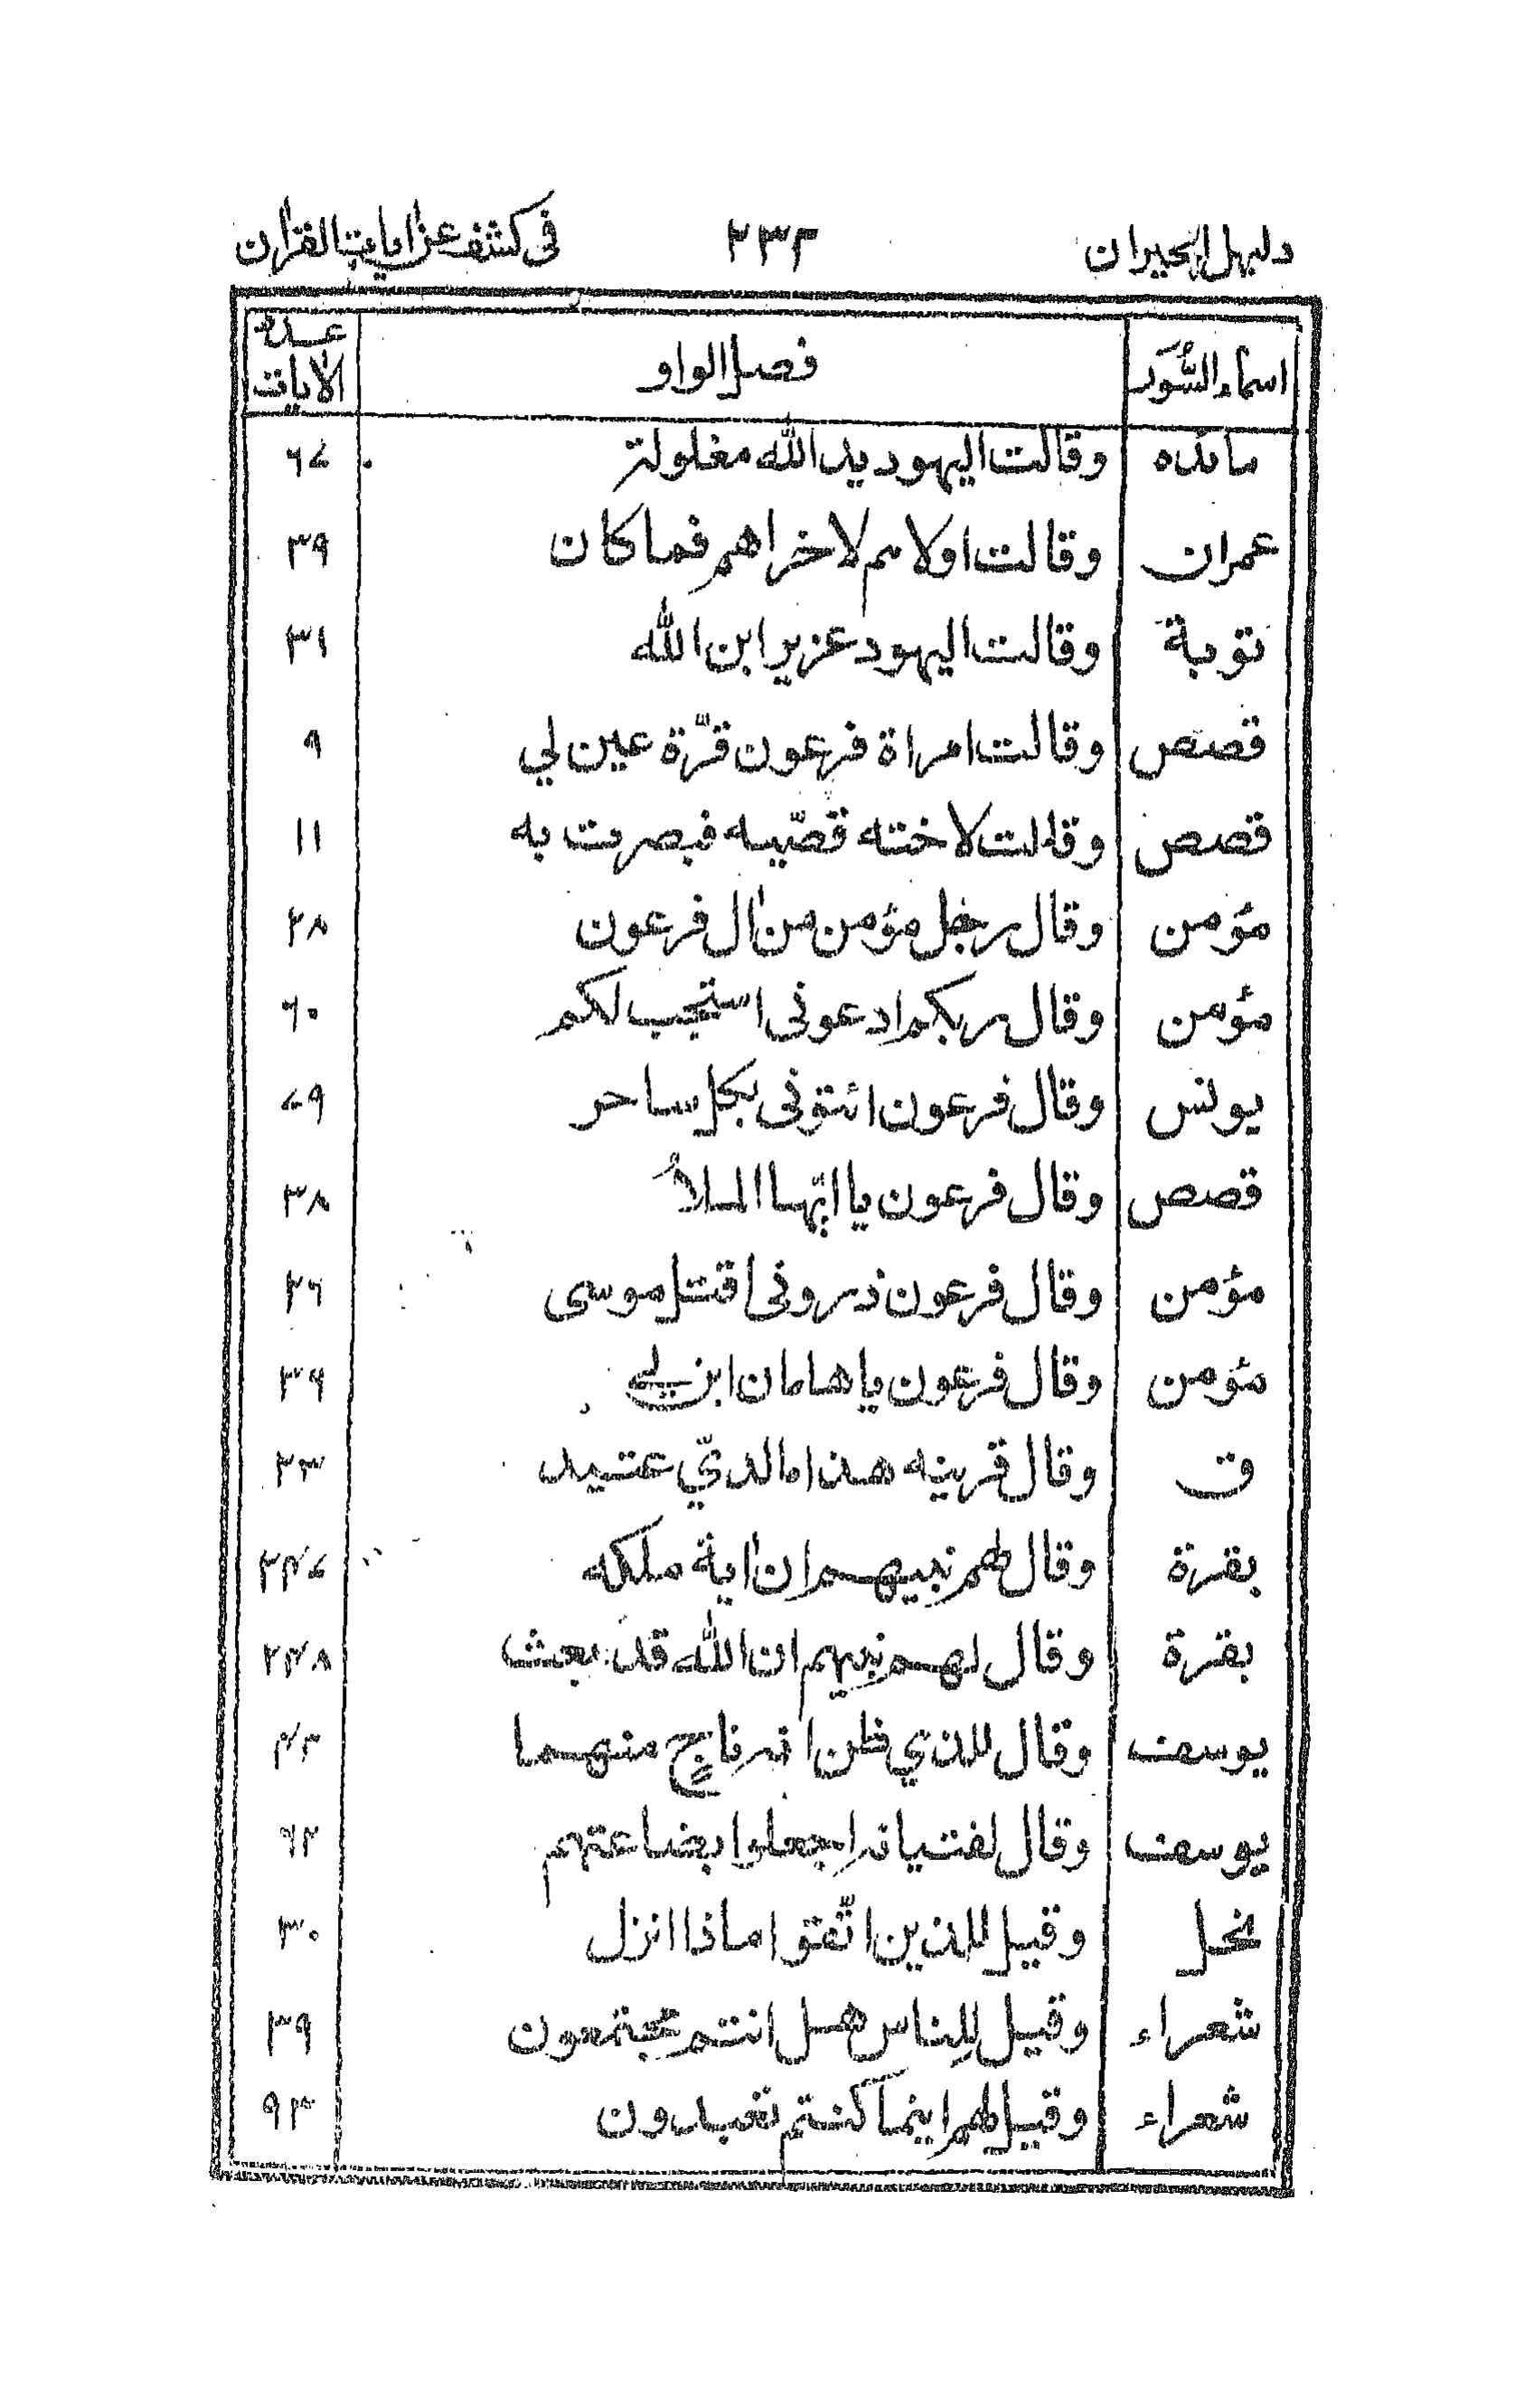 دليل الحيران ٢٣٢ في كشف عن ايات القران
اسماء السُّوَر فصل الواو عدة الايات
مائده وقالت اليهود يد الله مغلولة ٦٧
عمران وقالت اولاهم لاخراهم فما كان ٣٩
توبة وقالت اليهود عزير ابن الله ٣١
قصص وقالت امراة فرعون قرّة عين لي ٩
قصص وقالت لاخته قصّيه فبصرت به ١١
مؤمن وقال رجل مؤمن من ال فرعون ٢٨
مؤمن وقال ربكم ادعوني استجب لكم ٦٠
يونس وقال فرعون ائتوني بكل ساحر ٧٩
قصص وقال فرعون يا ايّها الملأُ ٣٨
مؤمن وقال فرعون ذروني اقتل موسى ٢٦
مؤمن وقال فرعون يا هامان ابن لي ٣٦
ق وقال قرينه هذا ما لديّ عتيد ٢٣
بقرة وقال لهم نبيهم ان اية ملكه ٢٤٧
بقرة وقال لهم نبيهم ان الله قد بعث ٢٤٨
يوسف وقال للذي ظن انه ناجٍ منهما ٤٢
يوسف وقال لفتيانه اجعلوا بضاعتهم ٦٢
نحل وقيل للذين اتّقوا ماذا انزل ٣٠
شعراء وقيل للناس هل انتم مجتمعون ٣٩
شعراء وقيل لهم اينما كنتم تعبدون ٩٣